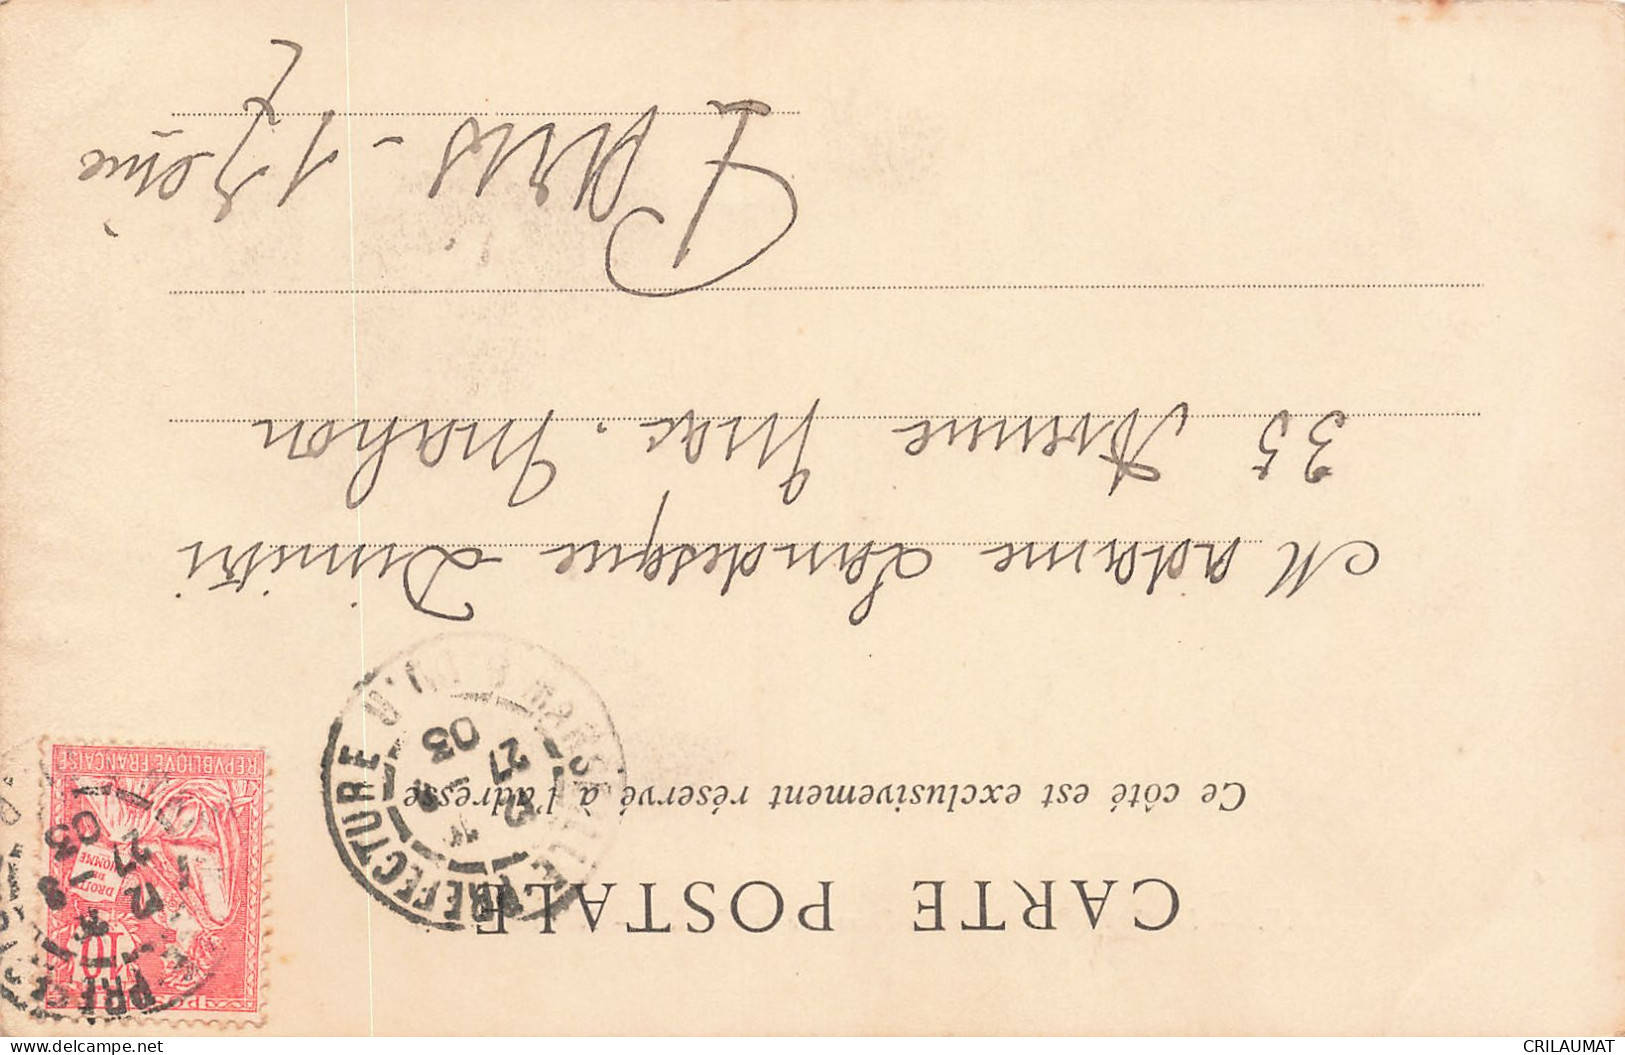 CARTE POSTALE
Ce côté est exclusivement réservé à l'adresse
Madame Landesque Dimitri
35 Avenue Mac-Mahon
Paris - 17eme
PREFECTURE MARSEILLE
27
03
REPVBLIQVE FRANÇAISE
DROITS
DE
L'HOMME
10
POSTES
PREFECTURE
27
03
CRILAUMAT